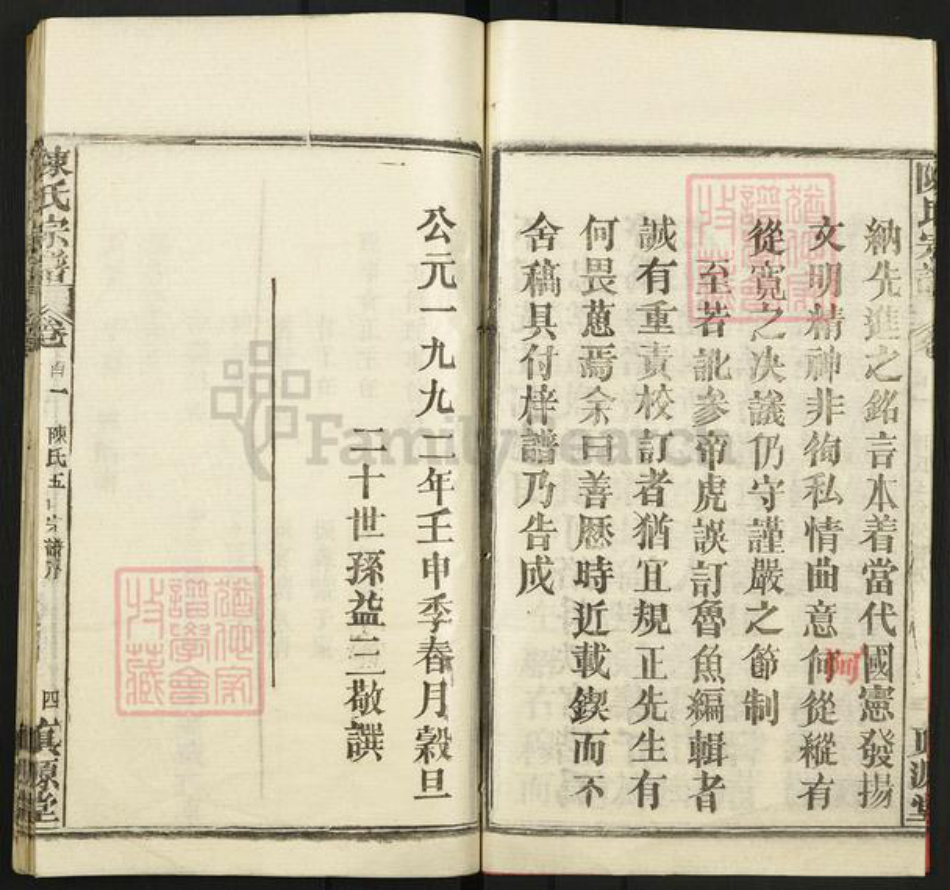 納先進之銘言本着當代國憲發揚
文明精神非徇私情曲意何從縱有
阿
從寬之决議仍守謹嚴之節制
至若訛參帝虎誤訂魯魚編輯者
誠有重責校訂者猶宜規正先生有
何畏葸焉余曰善歷時近載鍥而不
舍稿具付梓譜乃告成
公元一九九二年壬申季春月穀旦
二十世孫益三敬譔
陳氏宗譜 卷首一 陳氏五 宗譜序 四 真源堂
FamilySearch